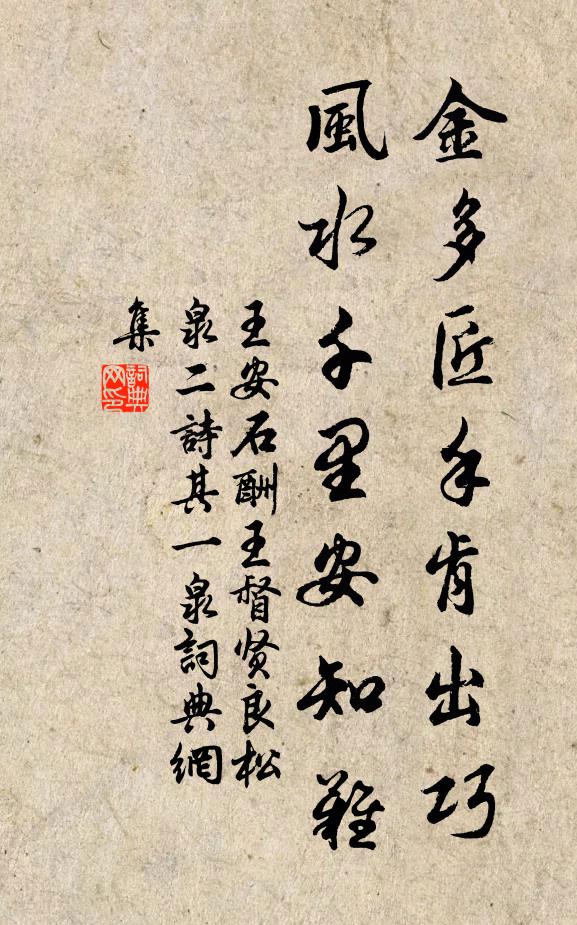 金多匠手肯出巧
風水千里安知難
王安石酬王督贤良松
泉二詩其一泉詞典網
集
詞典
网印